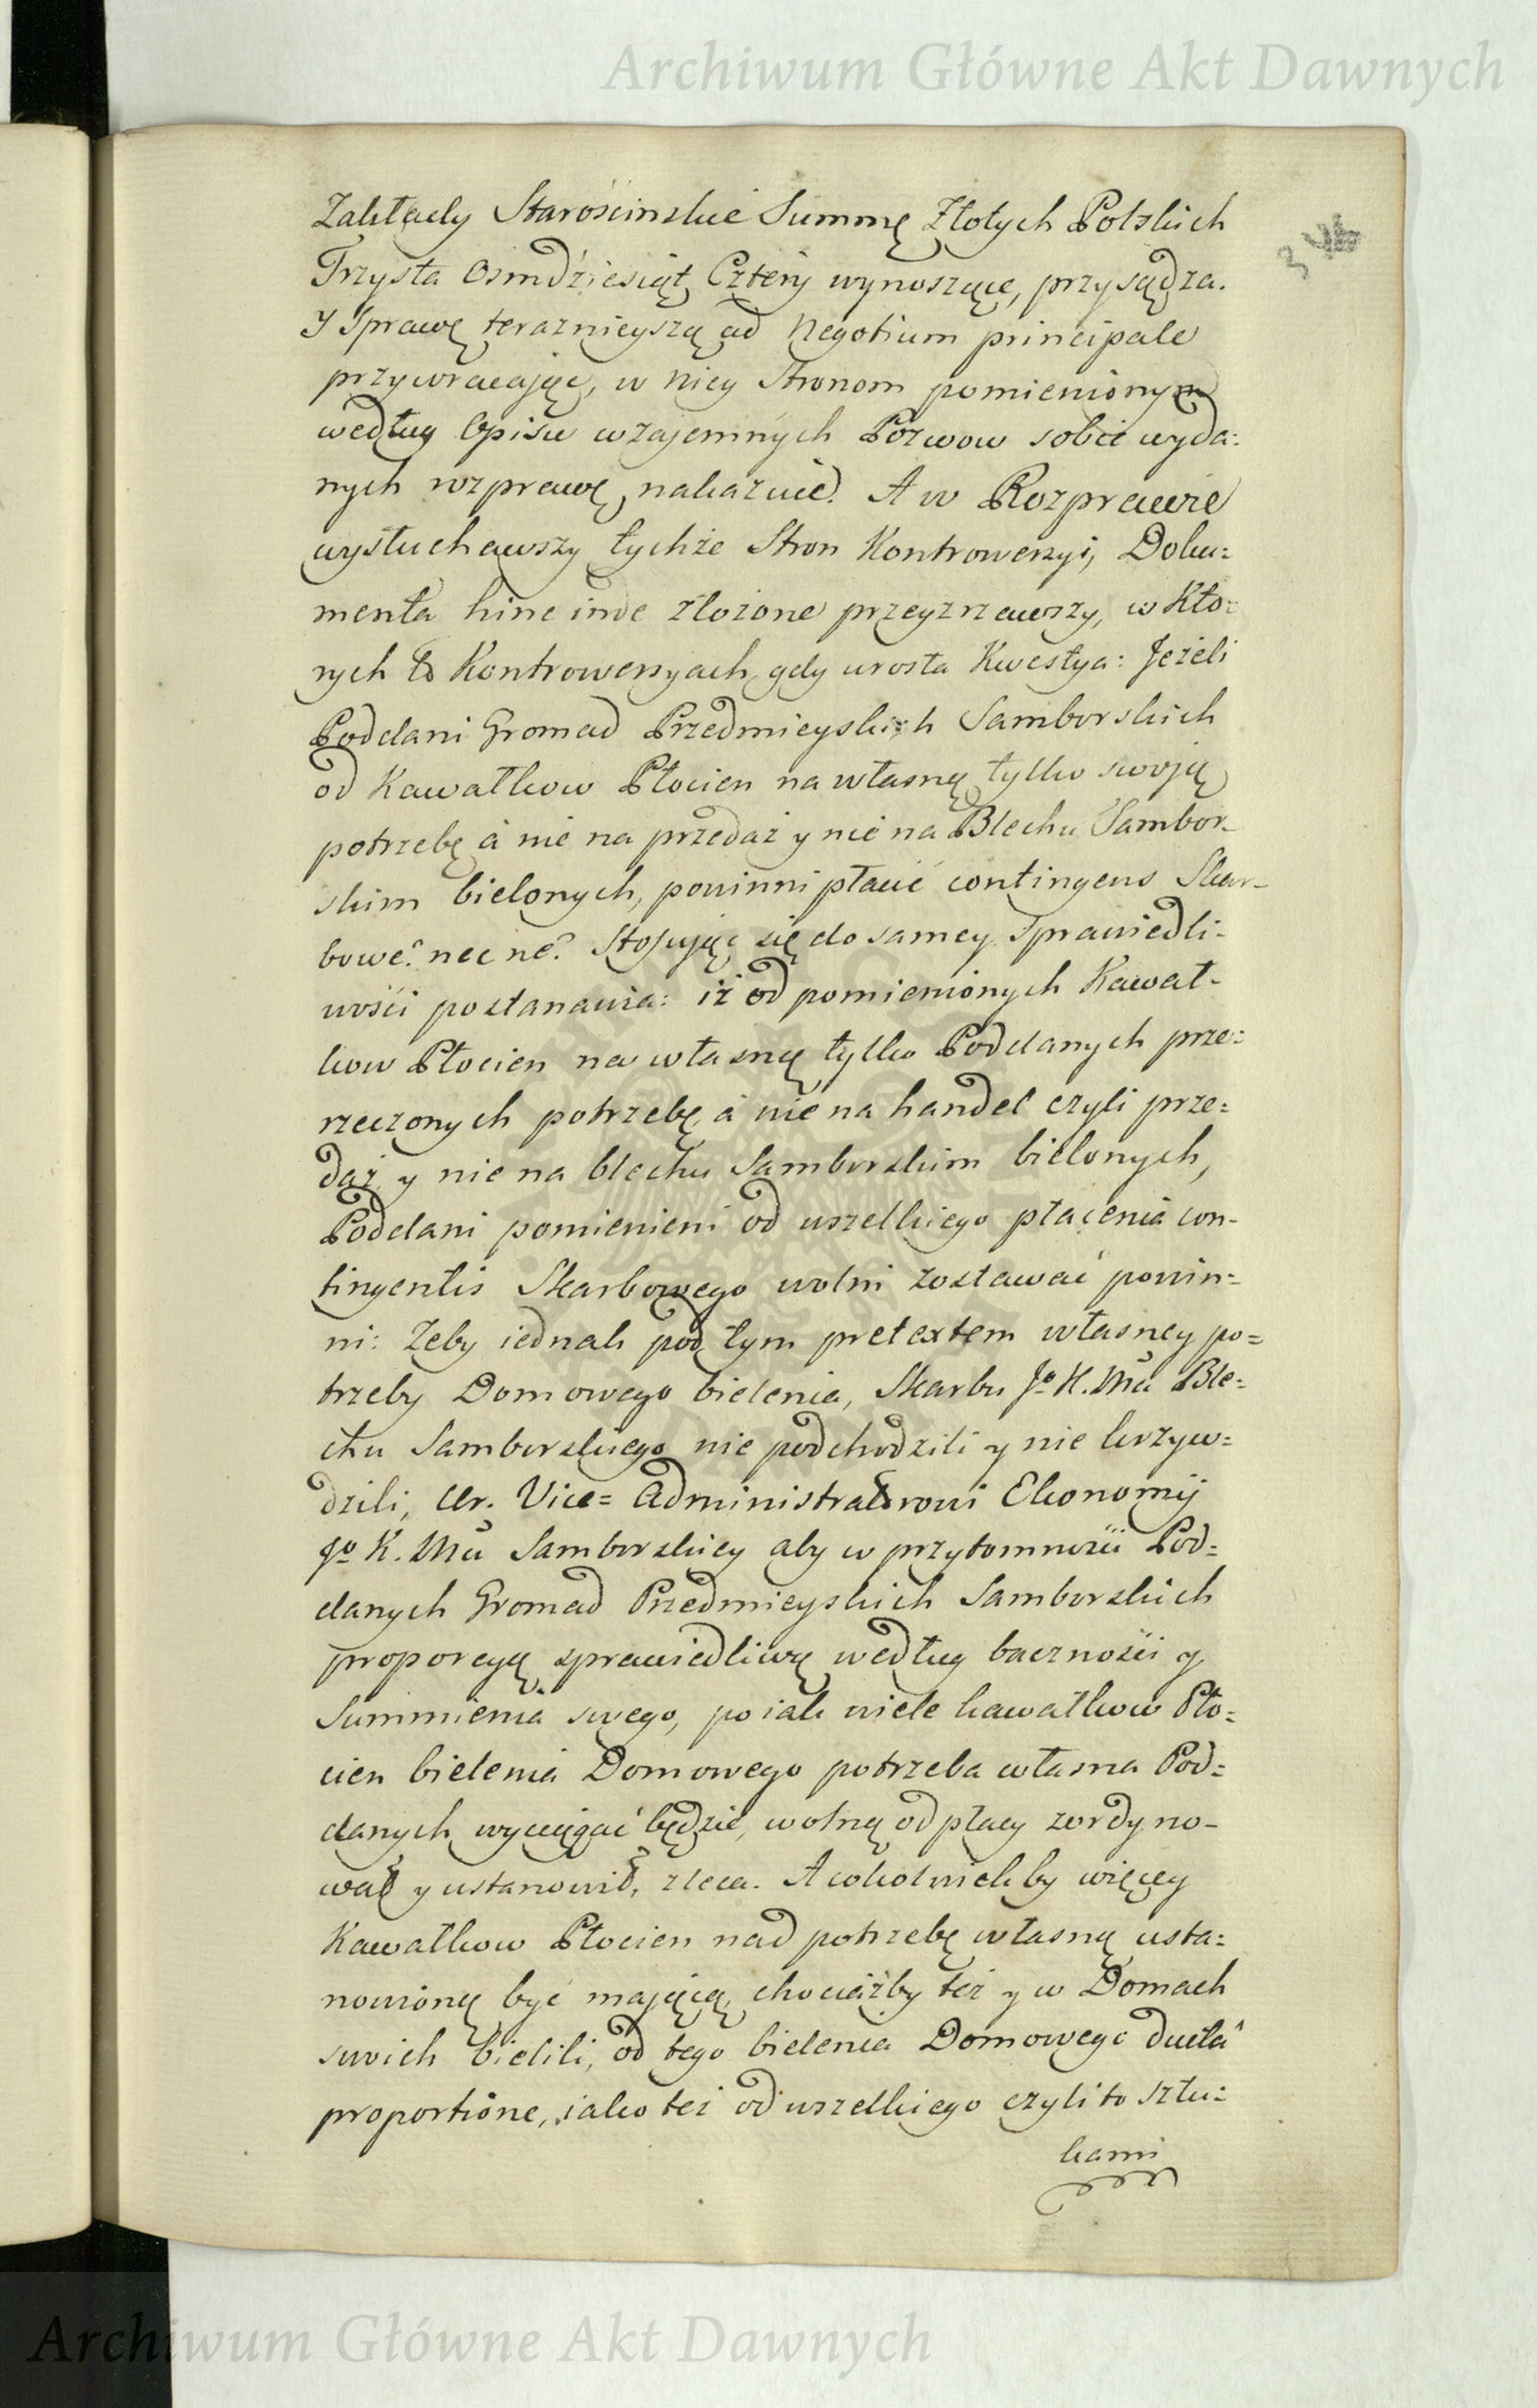 Archiwum Główne Akt Dawnych
Zakłady Starościnskie Summę Złotych Polskich
Trzysta Osmdziesiąt Cztery wynoszące, przysądza.
Y Sprawę teraznieyszą ad Negotium principale
przywracaiąc, w niey Stronom pomienionym
według Opisu wzajemnych Pozwow sobie wyda:
nych rozprawę nakazuie. A w Rozprawie
wysłuchawszy tychże Stron Kontrowersyi, Doku:
menta hinc inde złożone przeyzrzawszy, w Kto:
rych to Kontrowersyach gdy urosła Kwestya: Jeżeli
Poddani Gromad Przedmieyskich Samborskich
od Kawałkow Płocien na własną tylko swoją
potrzebę á nie na przedaż y nie na Blechu Sambor-
skim bielonych, powinni płacić contingens Skar-
bowe? nec ne? Stosując się do samey Sprawiedli-
wości postanawia: iż od pomienionych Kawał-
kow Płocien na własną tylko Poddanych prze:
rzeczonych potrzebę, á nie na handel czyli prze:
daż y nie na blechu Samborskim bielonych,
Poddani pomienieni od wszelkiego płacenia con-
tingentis Skarbowego wolni zostawać powin:
ni: Żeby iednak pod tym pretextem własney po=
trzeby Domowego bielenia, Skarbu Jo K. Mci Ble:
chu Samborskiego nie podchodzili y nie krzyw:
dzili, Ur. Vice= Administratorowi Ekonomij
Jo K. Mci Samborskiey aby w przytomności Pod=
danych Gromad Przedmieyskich Samborskich
proporcyą sprawiedliwą według baczności y
Summienia swego, po iak wiele kawałkow Pło:
cien bielenia Domowego potrzeba własna Pod=
danych wyciągać będzie, wolną od płacy zordyno-
wał y ustanowił, zleca. A cokolwiekby więcey
Kawałkow Płocien nad potrzebę własną usta:
nowioną być mającą, chociażby też y w Domach
swoich bielili, od tego bielenia Domowego ducta
proportione, iako też od wszelkiego czyli to sztu:
kami
Archiwum Główne Akt Dawnych